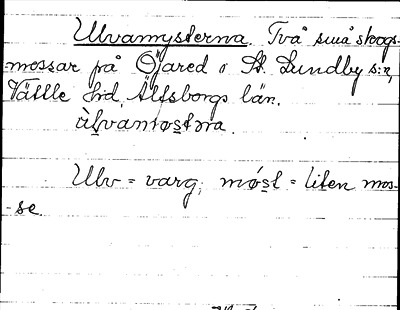 Ulvamysterna. Två små skogs-
mossar på Öjared i St. Lundby s:n,
Vättle hd, Älfsborgs län.
Ulv = varg; møst = liten mos-
-se.